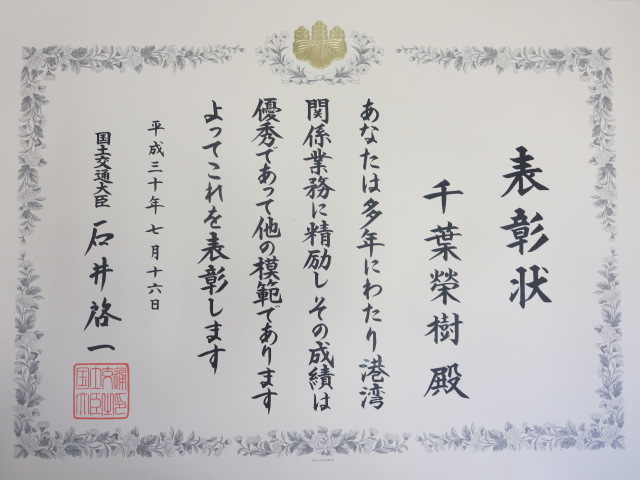 表彰状
千葉榮樹 殿
あなたは多年にわたり港湾
関係業務に精励しその成績は
優秀であって他の模範であります
よってこれを表彰します
平成三十年七月十六日
国土交通大臣 石井啓一
国土交通大臣之印